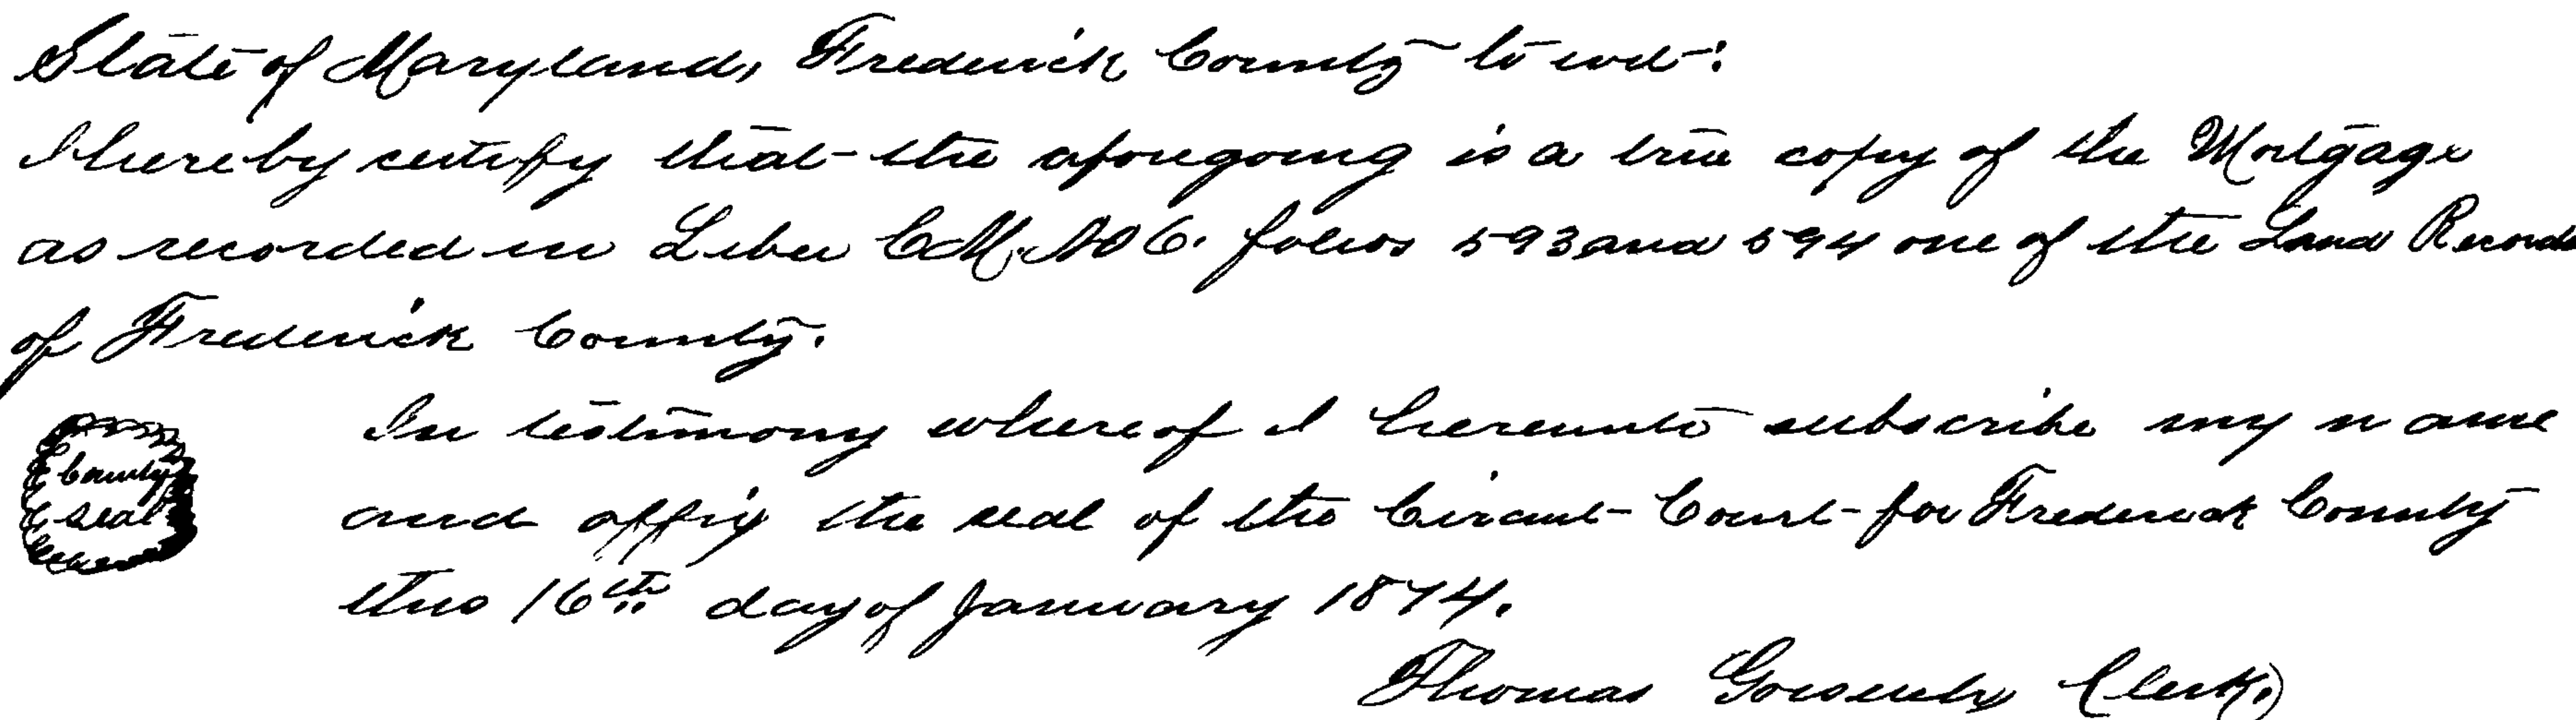 State of Maryland, Frederick County to wit:
I hereby certify that the aforegoing is a true copy of the Mortgage
as recorded in Liber C.M. No 6. folios 593 and 594 one of the Land Records
of Frederick County.
In testimony whereof I hereunto subscribe my name
County
and affix the seal of the Circuit Court for Frederick County
Seal
this 16th day of January 1874.
Thomas Gorsuch Clerk.